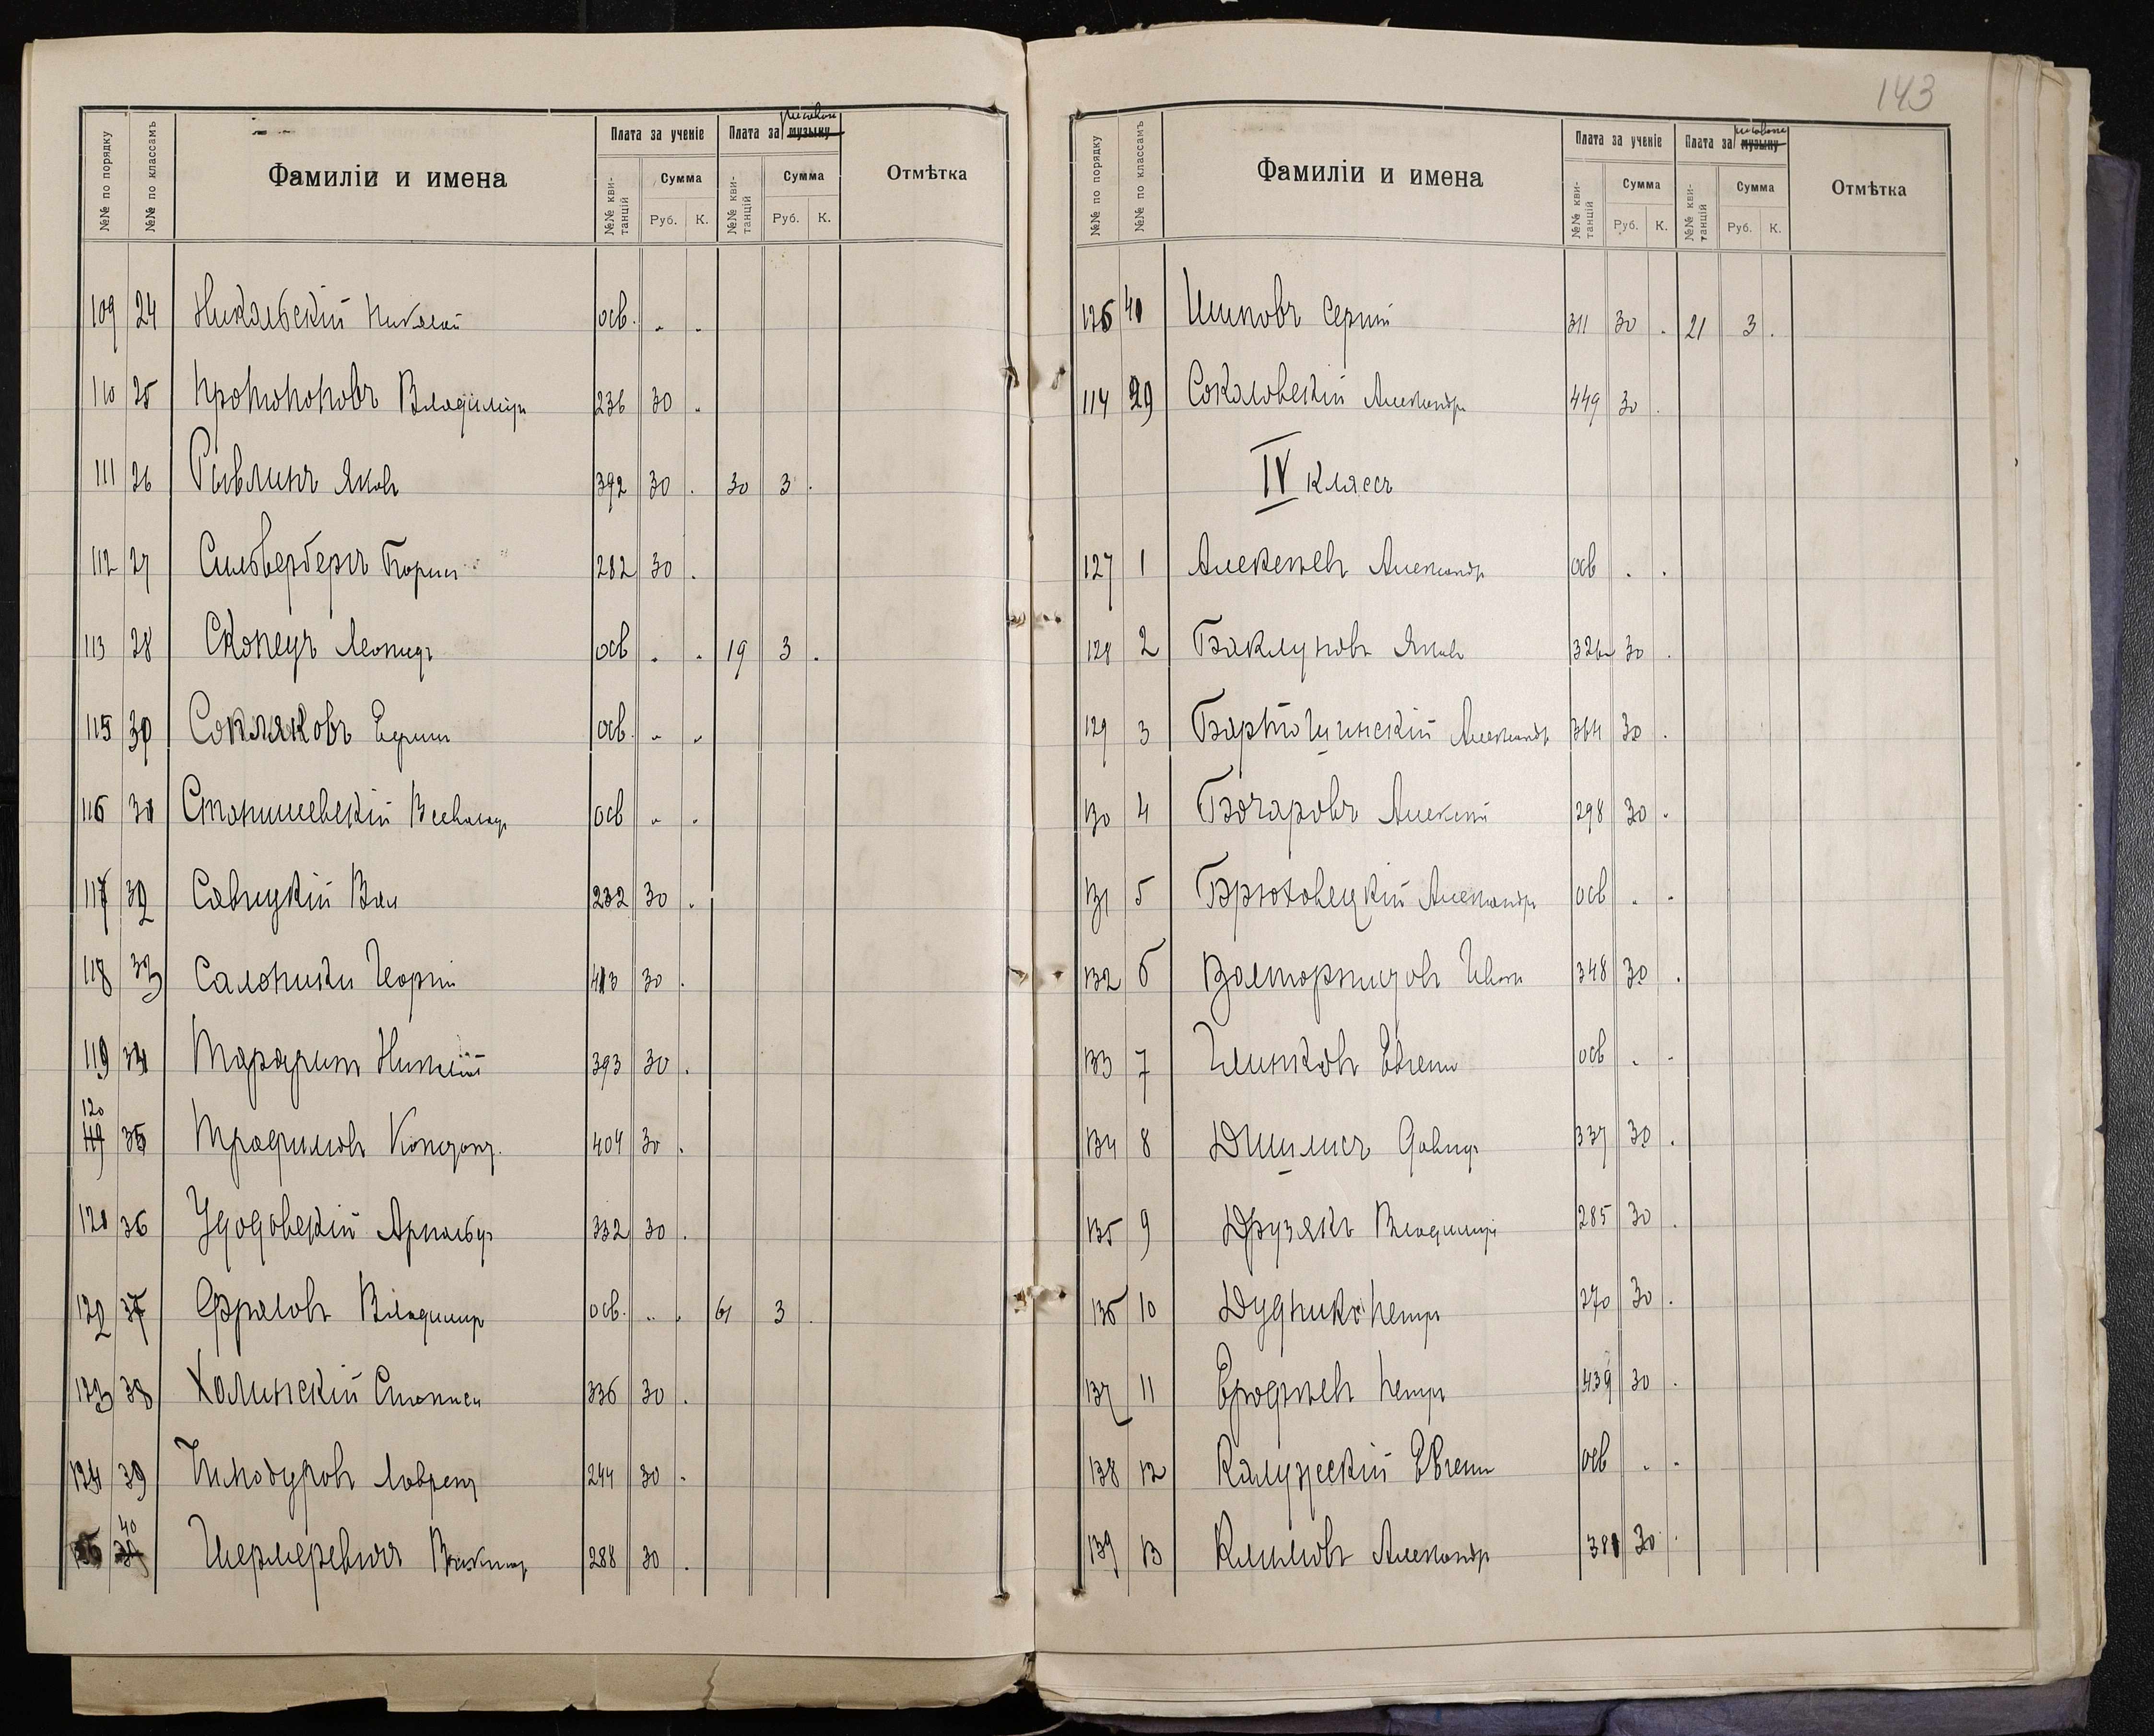 №№ по порядку №№ по классамъ Фамиліи и имена Плата за ученіе Плата за музыку Отмѣтка
№№ квитанцій Сумма Руб. К. №№ квитанцій Сумма Руб. К.
109 24 Никольскій Николай осв. " "
110 25 Протопоповъ Владиміръ 236 30 .
111 26 Рывлинъ Яковъ 392 30 . 30 3 .
112 27 Сильвербергъ Борисъ 282 30 .
113 28 Скопецъ Леонидъ осв . . 19 3 .
115 30 Соколяковъ осв. " "
116 31 Станишевскій Всеволодъ осв " .
117 32 Савицкій Вал 232 30 .
118 33 Салоники Георгій 413 30 .
119 34 393 30 .
120
119 35 Трофимовъ 404 30 .
121 36 Удодовскій Арнольдъ 332 30 .
122 37 Фроловъ Владиміръ осв. " . 61 3 .
123 38 Холинскій Станисл 336 30 .
124 39 244 30 .
40
125 39 288 30 .
143
№№ по порядку №№ по классамъ Фамиліи и имена Плата за ученіе Плата за музыку Отмѣтка
№№ квитанцій Сумма Руб. К. №№ квитанцій Сумма Руб. К.
126 40 Сергій 311 30 . 21 3 .
114 29 Соколовскій Александръ 449 30 .
IV классъ
127 1 Алексѣевъ Александръ осв . .
128 2 Баклуновъ Яковъ 326 30 .
129 3 Бартошинскій Александръ 364 30 .
130 4 Бочаровъ Алексѣй 298 30 .
131 5 Брюховецкій Александръ осв . .
132 6 Валторницовъ Иванъ 348 30 .
133 7 Глинковъ Евгеній осв . .
134 8 Давидъ 337 30 .
135 9 Друзякъ Владиміръ 285 30 .
136 10 Дудникъ Петръ 270 30 .
137 11 Ерофѣевъ Петръ 439 30 .
138 12 Калужскій Евгеній осв . .
139 13 Климовъ Александръ 381 30 .